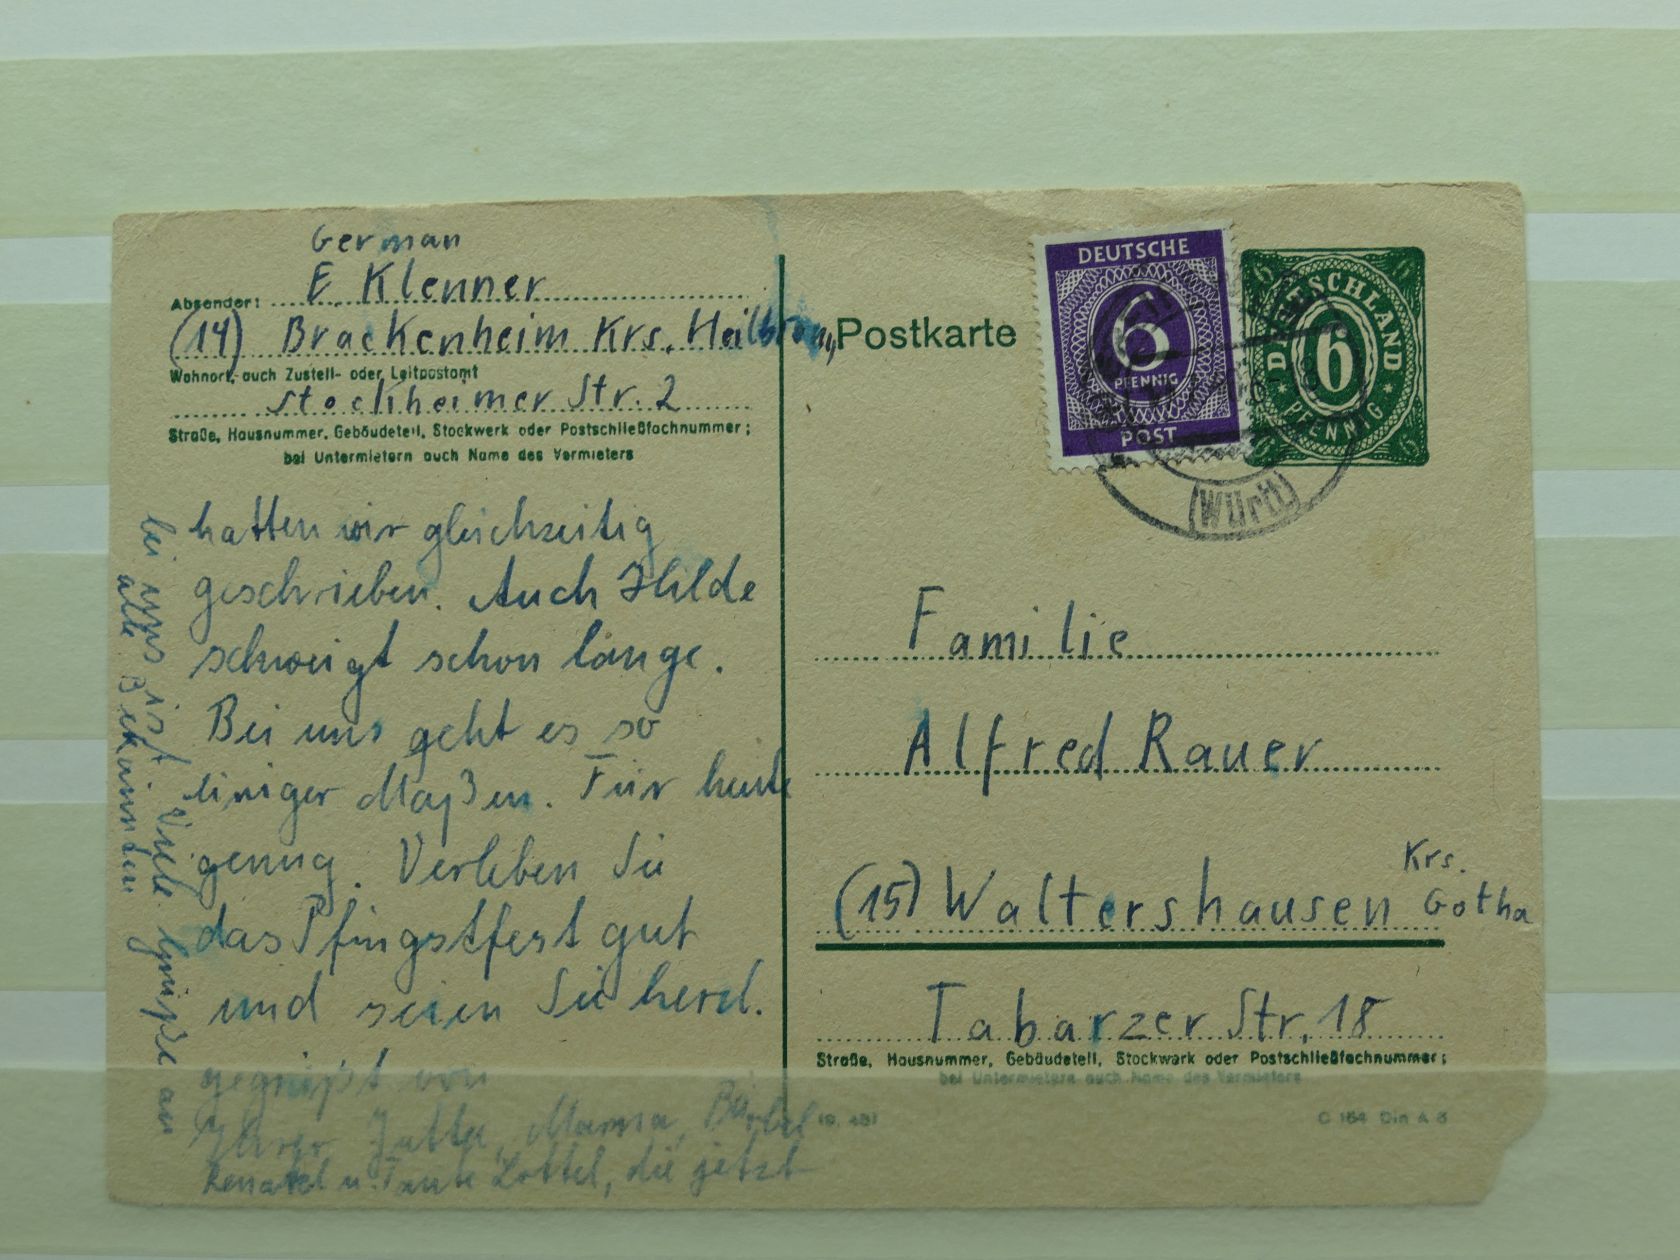 German
Absender: E. Klenner
(14) Brackenheim Krs. Heilbronn,
Wohnort, auch Zustell- oder Leitpostamt
Stockheimer Str. 2
Straße, Hausnummer, Gebäudeteil, Stockwerk oder Postschließfachnummer;
bei Untermietern auch Name des Vermieters
hatten wir gleichzeitig
geschrieben. Auch Hilde
schweigt schon lange.
Bei uns geht es so
einiger Maßen. Für heute
genug. Verleben Sie
das Pfingstfest gut
und seien Sie herzl.
gegrüßt von
Ihrer Jutta, Mama, Bärbel
Renatel u. Tante Lottel, die jetzt
bei uns ist. Viele Grüße an
alle Bekannten
Postkarte
DEUTSCHE
6
PFENNIG
POST
DEUTSCHLAND
6
PFENNIG
(Württ)
Familie
Alfred Rauer
(15) Waltershausen Krs. Gotha
Tabarzer Str. 18
Straße, Hausnummer, Gebäudeteil, Stockwerk oder Postschließfachnummer;
bei Untermietern auch Name des Vermieters
C 154 Din A 6